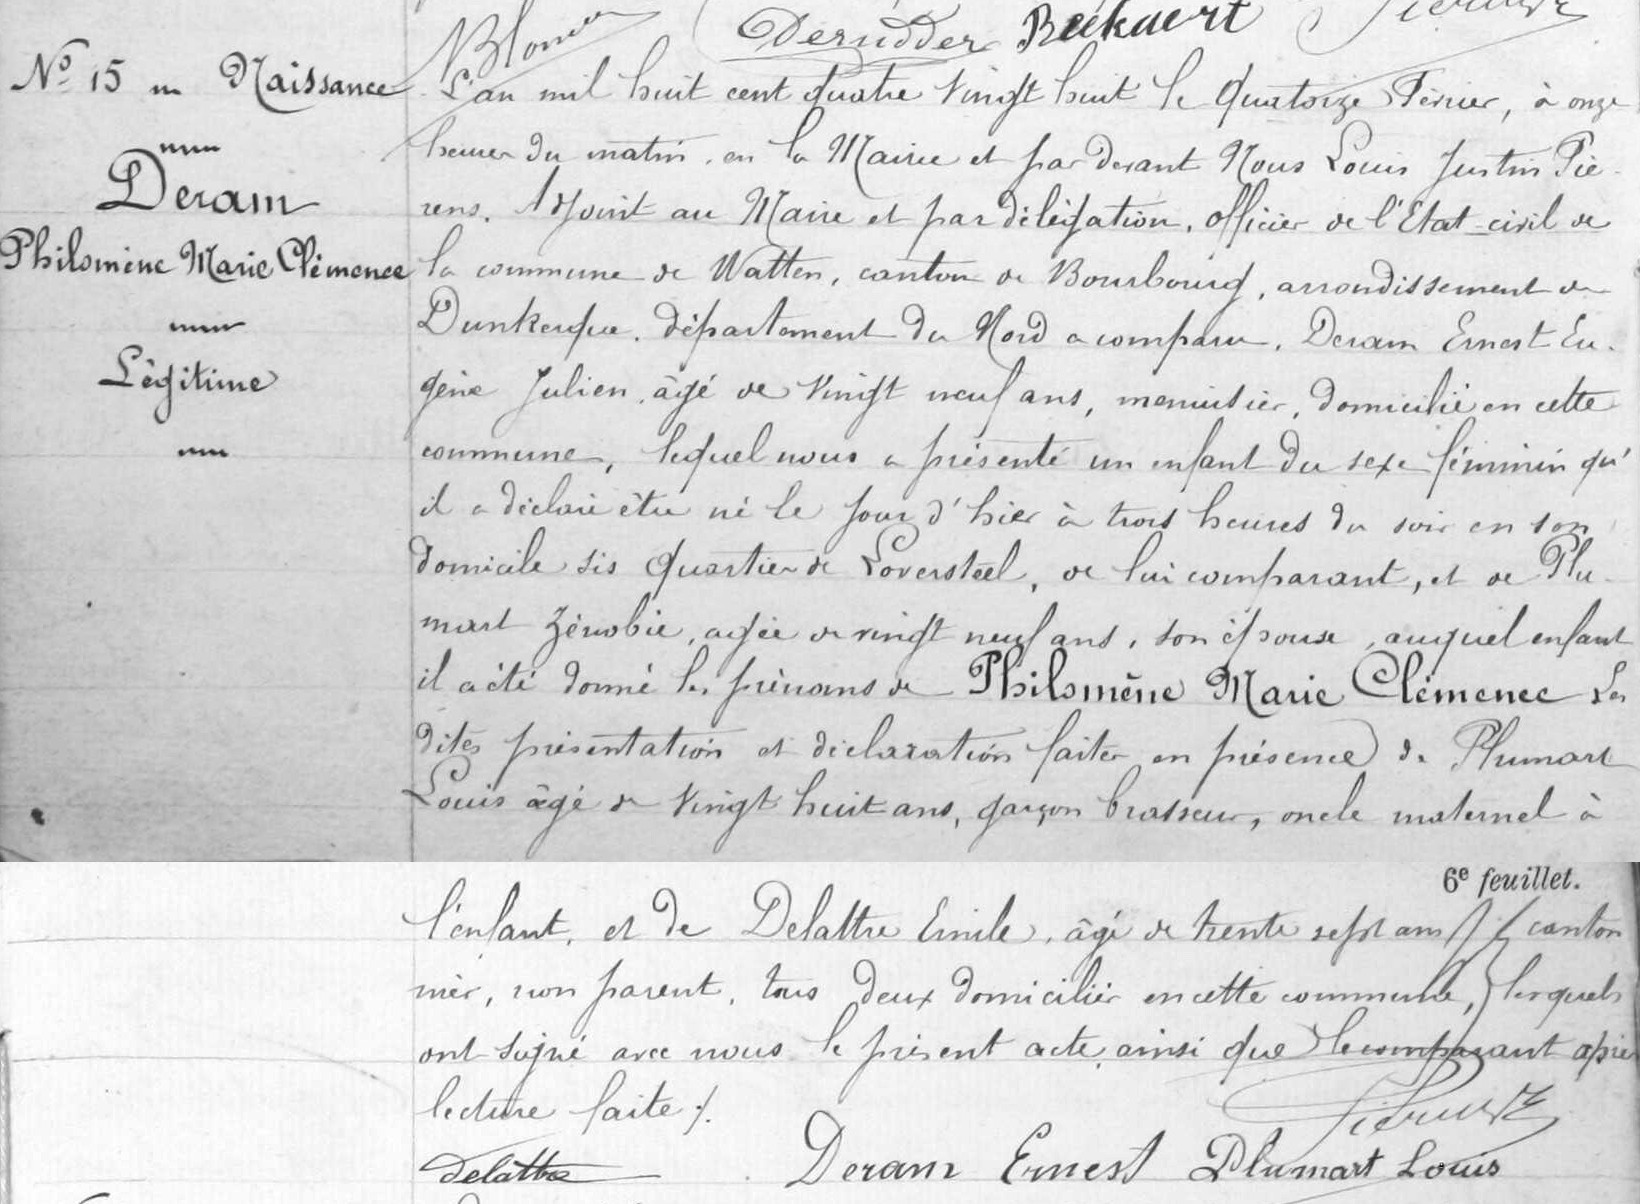 Blonde Derudder Beckaert
N° 15 Naissance
Deram
Philomène Marie Clémence
Légitime
L'an mil huit cent quatre vingt huit le quatorze Février, à onze
heures du matin, en la Mairie et par devant Nous Louis Justin Pie-
rens, Adjoint au Maire et par délégation, officier de l'Etat-civil de
la commune de Watten, canton de Bourbourg, arrondissement de
Dunkerque, département du Nord a comparu, Deram Ernest Eu-
gène Julien, âgé de vingt neuf ans, menuisier, domicilié en cette
commune, lequel nous a présenté un enfant du sexe féminin qu'
il a déclaré être né le jour d'hier à trois heures du soir en son
domicile sis quartier de Loversteel, de lui comparant, et de Plu-
mart Zénobie, agée de vingt neuf ans, son épouse, auquel enfant
il a été donné les prénoms de Philomène Marie Clémence Les
dites présentation et déclaration faites en présence de Plumart
Louis âgé de vingt huit ans, garçon brasseur, oncle maternel à
6e feuillet.
l'enfant, et de Delattre Emile, âgé de trente sept ans canton
nier, non parent, tous deux domiciliés en cette commune, lesquels
ont signé avec nous le présent acte, ainsi que le comparant après
lecture faite ./.
Pierens
delattre Deram Ernest Plumart Louis